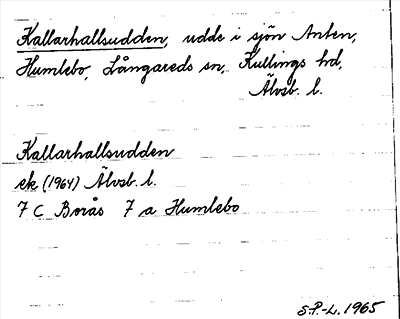 Kallarhallsudden, udde i sjön Anten,
Humlebo, Långareds sn, Kullings hd,
Älvsb. l.
Kallarhallsudden
ek (1964) Älvsb. l.
7 C Borås 7 a Humlebo
S.P.-L. 1965